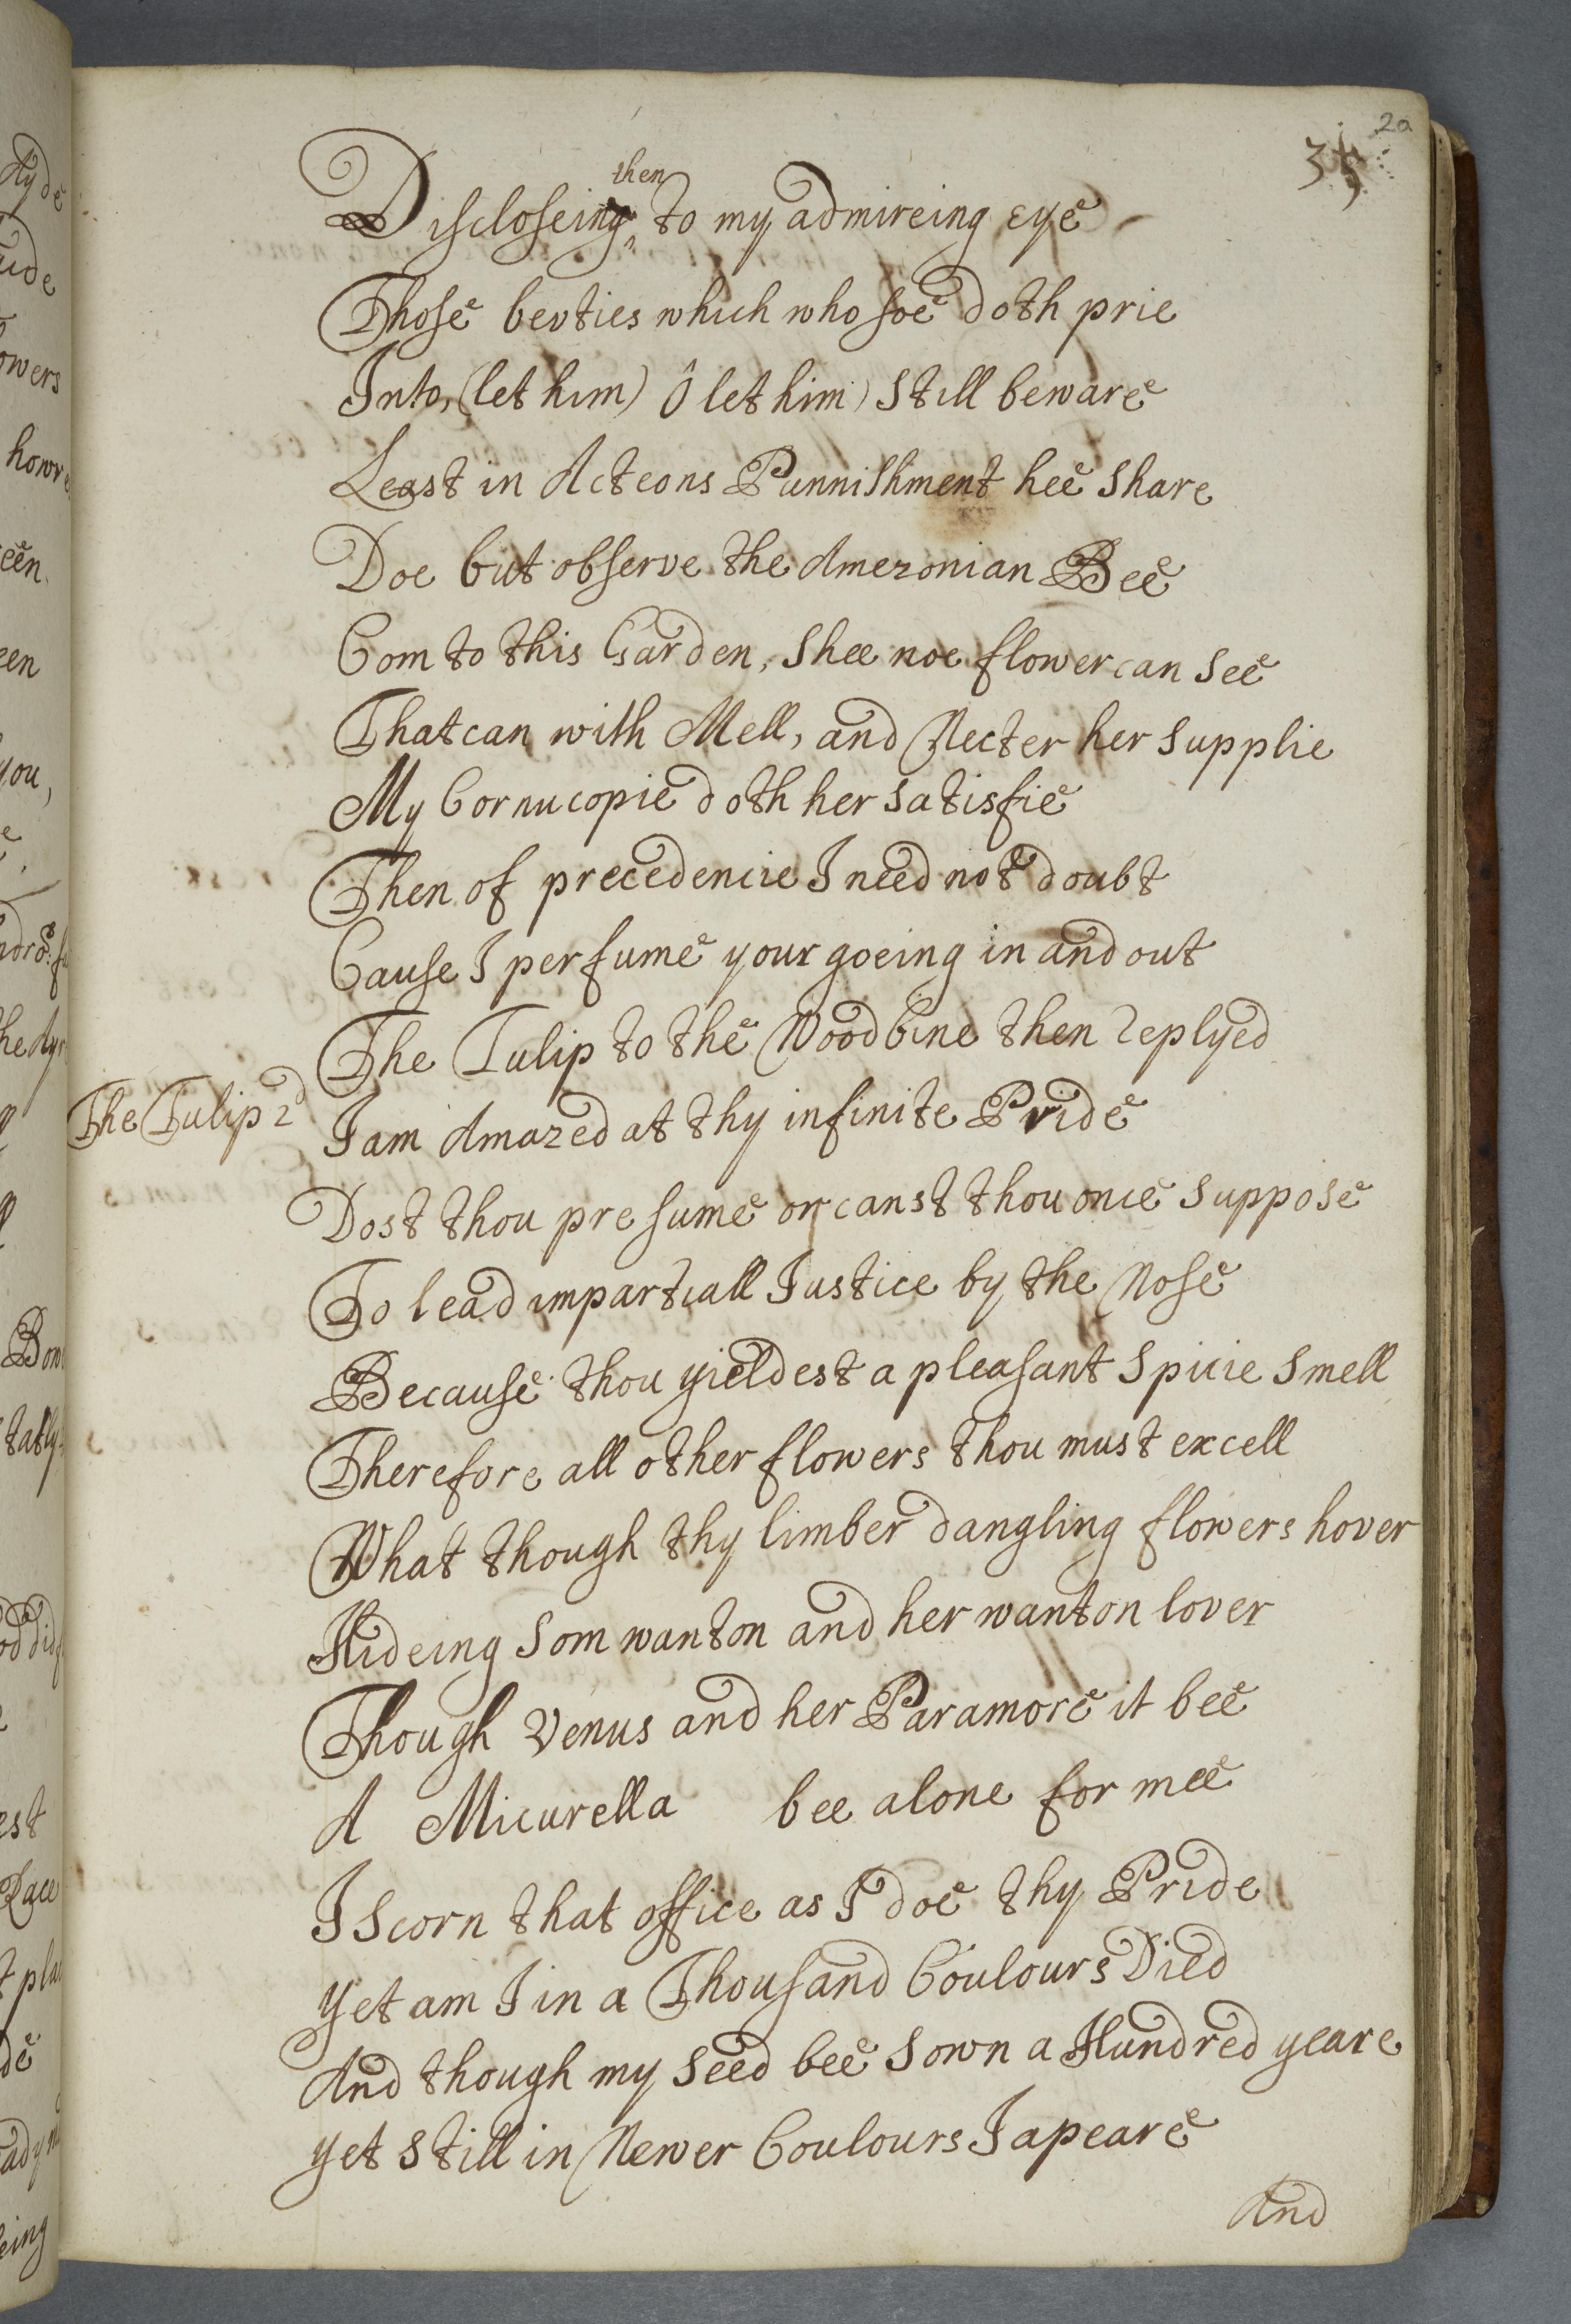 2a
35
then
Discloseing to my admireing eye
Those bevties which who soe doth prie
Into, (let him) ô let him) still beware
Least in Acteons Punnishment hee share
Doe but observe the Amezonian Bee
Com to this Garden, shee noe flower can see
That can with Mell, and Necter her supplie
My Cornucopie doth her satisfie
Then of precedencie I need not doubt
Cause I perfume your goeing in and out
The Tulip to the Woodbine then Replyed
The Tulip 2d
I am Amazed at thy infinite Pride
Dost thou presume or canst thou once suppose
To lead impartiall Justice by the Nose
Because thou yieldest a pleasant Spicie Smell
Therefore all other flowers thou must excell
What though thy limber dangling flowers hover
Hideing som wanton and her wanton lover
Though Venus and her Paramore it bee
A Micurella bee alone for mee
I scorn that office as I doe thy Pride
Yet am I in a Thousand Coulours Died
And though my seed bee sown a Hundred yeare
Yet still in Newer Coulours I apeare
And